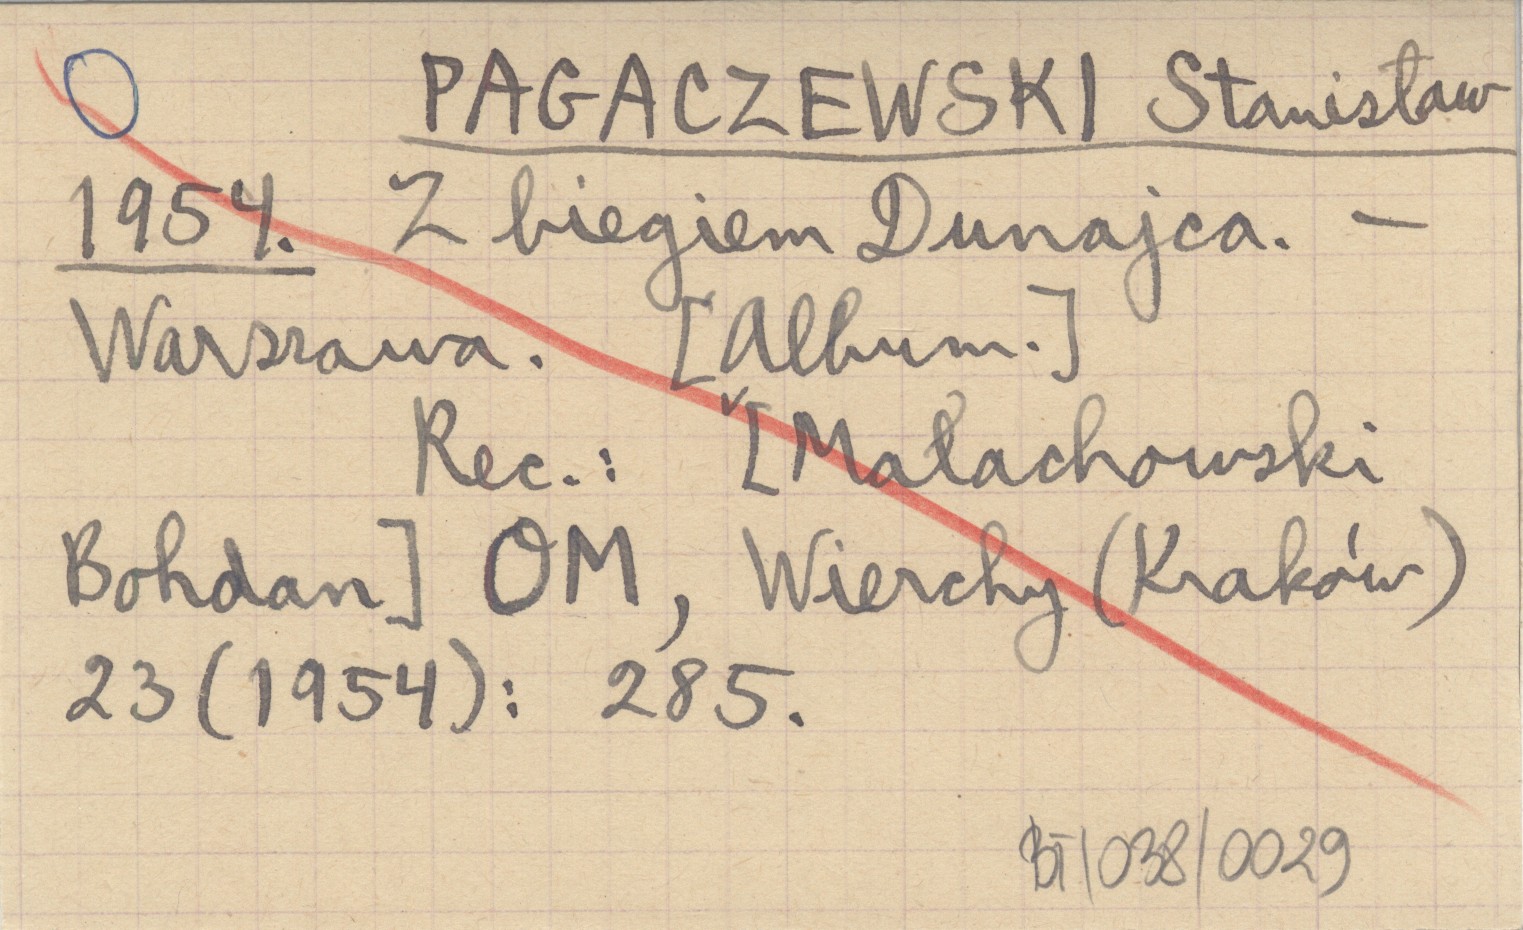 PAGACZEWSKI Stanisław
1954. Z biegiem Dunajca. —
Warszawa. [Album.]
Rec.: [Małachowski
Bohdan] OM, Wierchy (Kraków)
23(1954): 285.
BT/038/0029